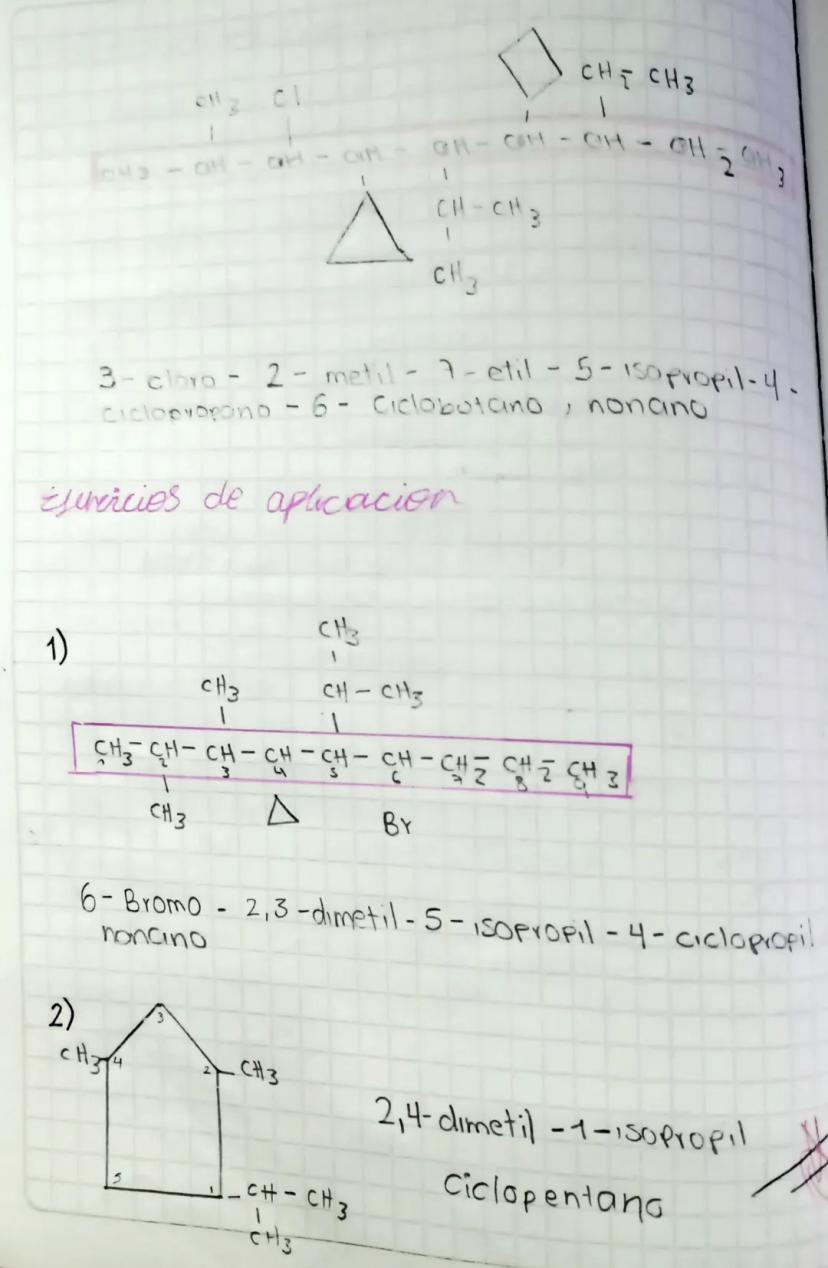 CH2 - CH3
CH3 Cl
CH3 - CH - CH - CH - CH - CH - CH - CH2 - CH3
CH - CH3
CH3
3 - cloro - 2 - metil - 7 - etil - 5 - isopropil - 4 -
ciclopropano - 6 - ciclobutano, nonano
Ejercicios de aplicacion
1)
CH3
CH3 CH - CH3
CH3 - CH - CH - CH - CH - CH - CH2 - CH2 - CH3
1 2 3 4 5 6 7 8 9
CH3 Br
6 - Bromo - 2,3 - dimetil - 5 - isopropil - 4 - ciclopropil
nonano
2)
3
CH3 4 2 CH3
2,4 - dimetil - 1 - isopropil
5 1 - CH - CH3
ciclopentano
CH3